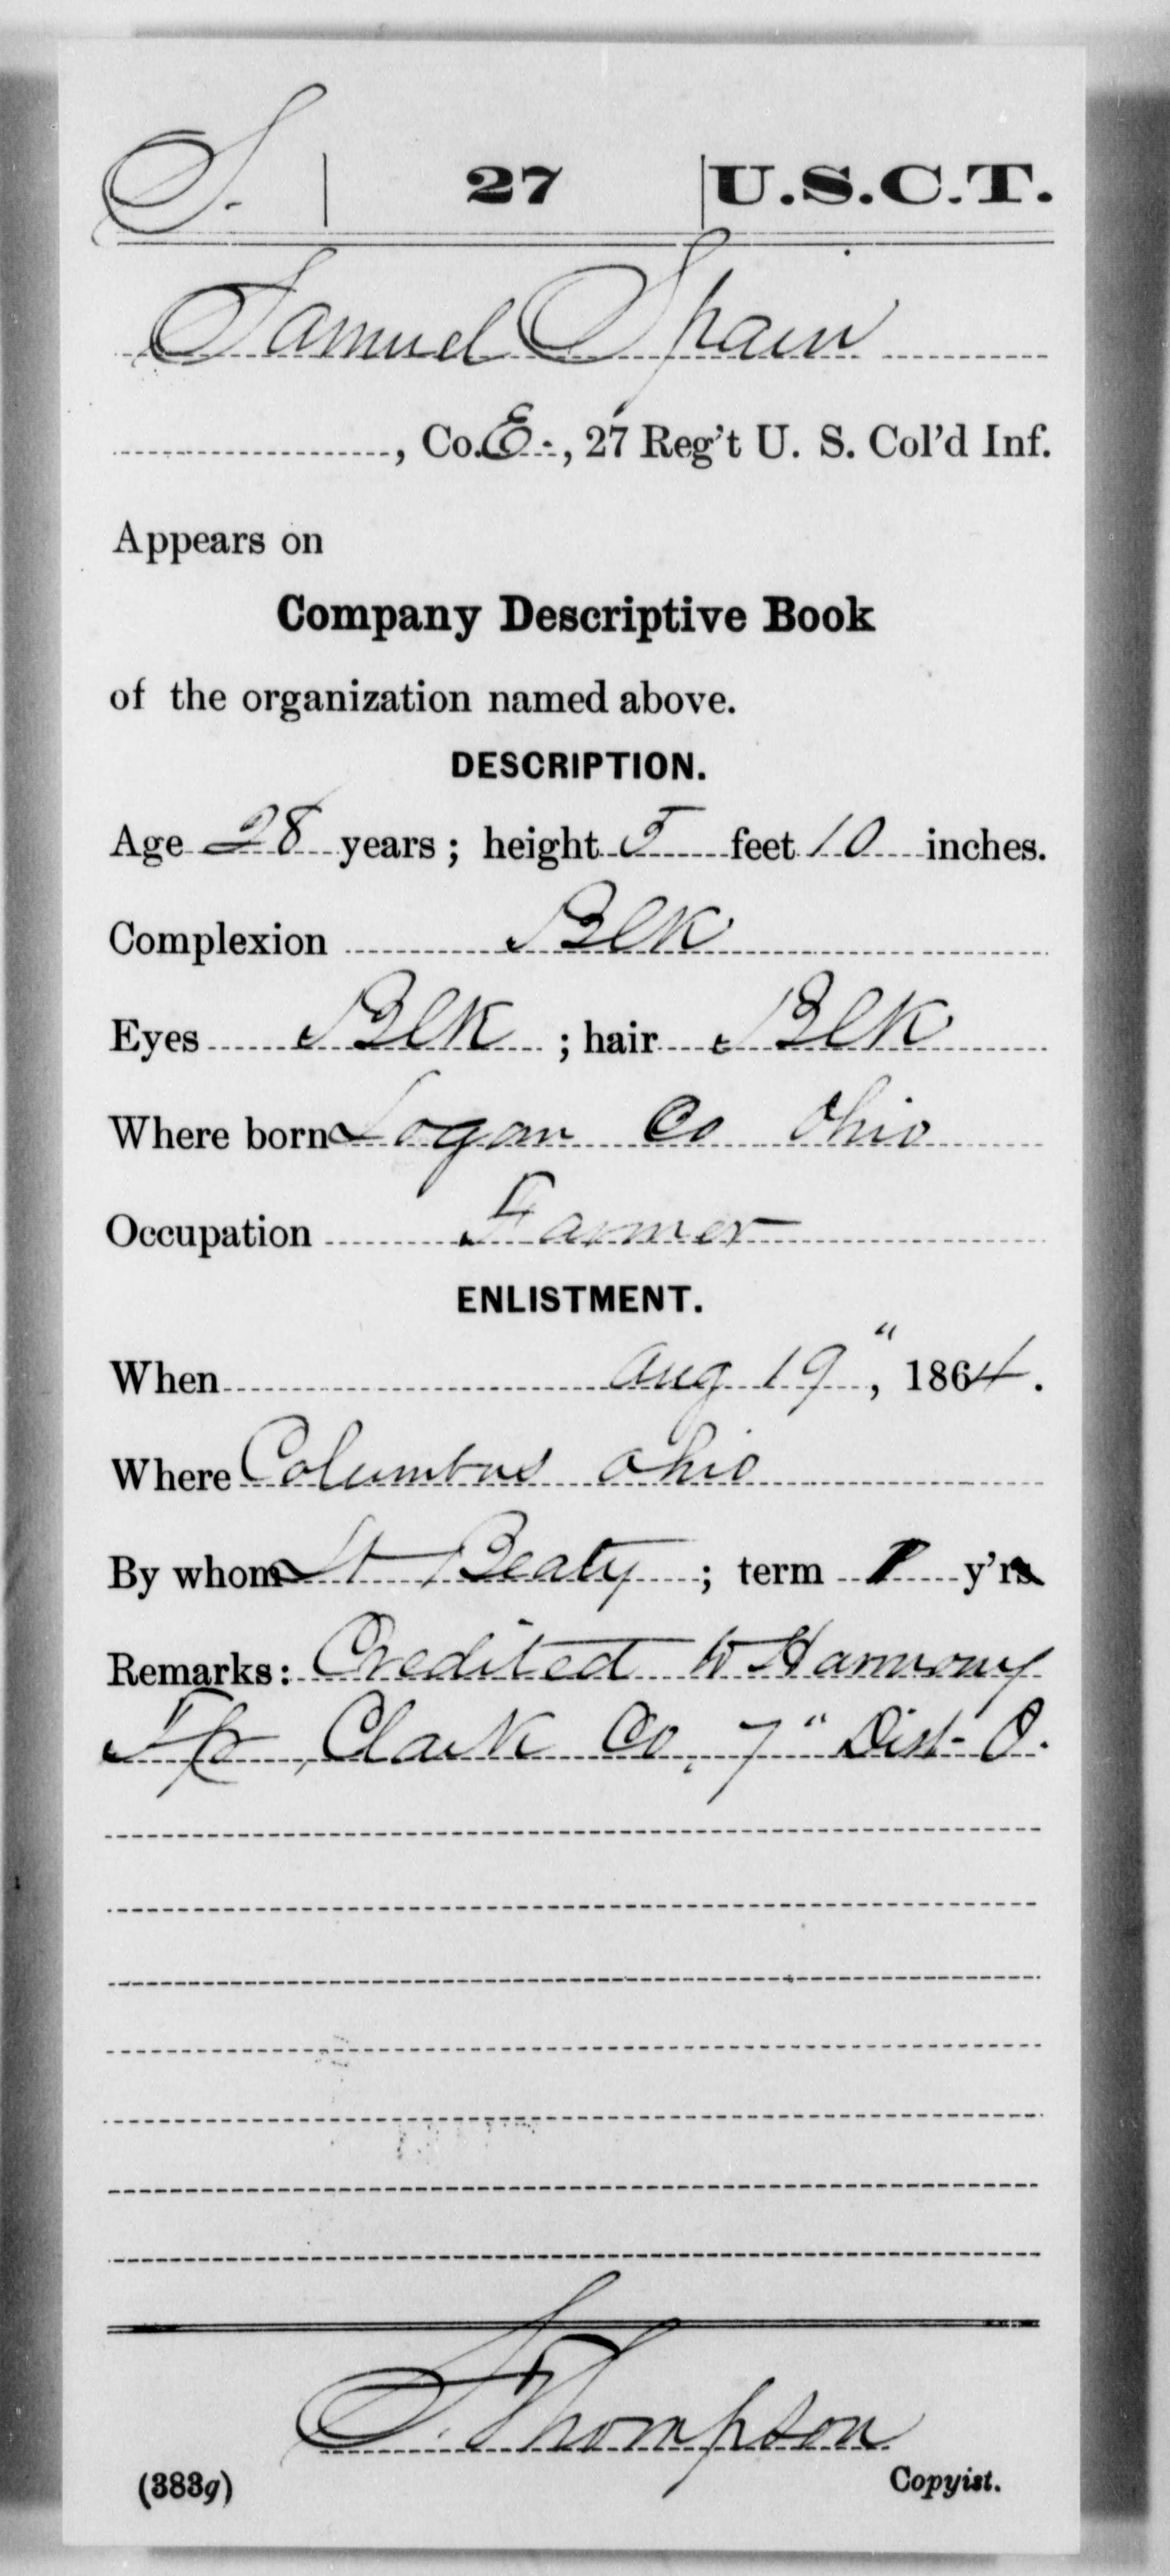 S. | 27 | U.S.C.T.
Samuel Spain
, Co. E., 27 Reg't U. S. Col'd Inf.
Appears on
Company Descriptive Book
of the organization named above.
DESCRIPTION.
Age 28 years; height 5 feet 10 inches.
Complexion Blk
Eyes Blk ; hair Blk
Where born Logan Co Ohio
Occupation Farmer
ENLISTMENT.
When Aug 19", 1864.
Where Columbus Ohio
By whom Lt Beaty ; term 1 y'rs
Remarks: Credited to Harmony
Tp, Clark Co, 7" Dist- O.
S. Thompson
(383g) Copyist.